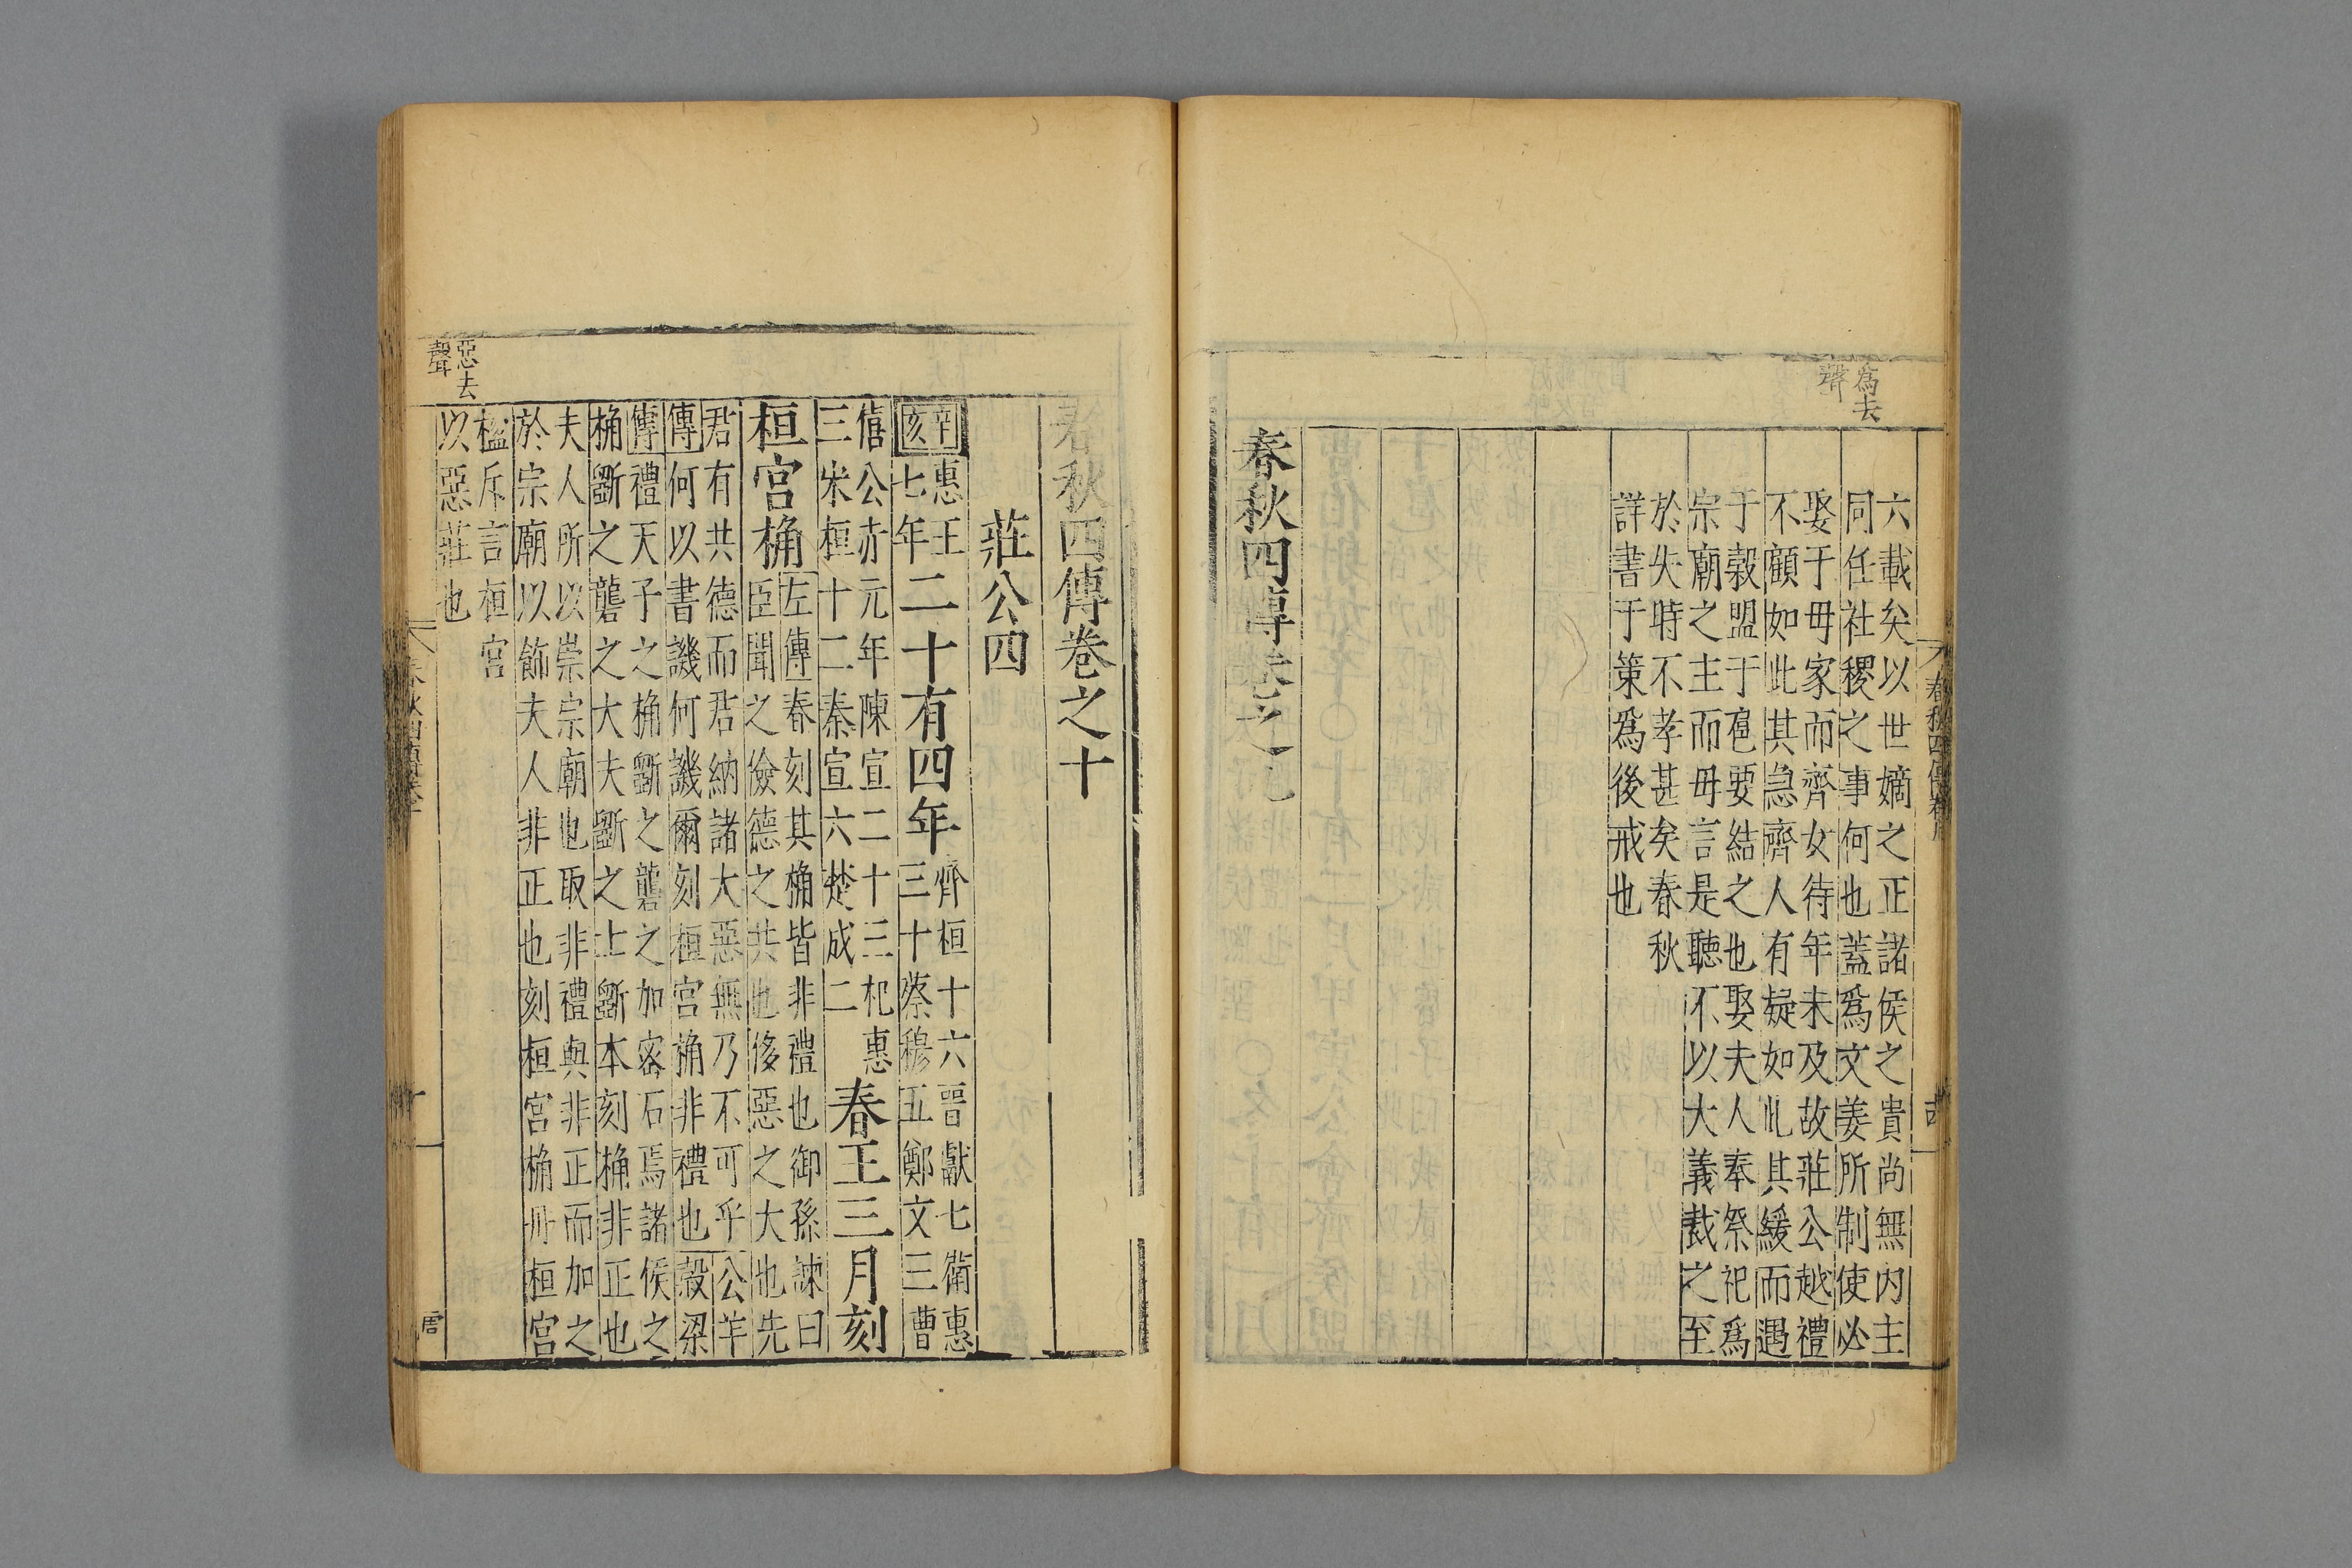 為去
聲
六載矣以世嫡之正諸侯之貴尚無內主
同任社稷之事何也蓋爲文姜所制使必
娶于母家而齊女待年未及故莊公越禮
不顧如此其急齊人有疑如此其緩而遇
于穀盟于扈要結之也娶夫人奉祭祀爲
宗廟之主而母言是聽不以大義裁之至
於失時不孝甚矣春秋
詳書于策爲後戒也
春秋四傳卷之
春秋四傳卷之十
莊公四
辛亥
惠王
七年
二十有四年
齊桓十六晉獻七衛惠
三十蔡穆五鄭文三曹
僖公赤元年陳宣二十三杞惠
三宋桓十二秦宣六楚成二
春王三月刻
桓宮桷
左傳春刻其桷皆非禮也御孫諫曰
臣聞之儉德之共也侈惡之大也先
君有共德而君納諸大惡無乃不可乎公羊
傳何以書譏何譏爾刻桓宮桷非禮也穀梁
傳禮天子之桷斵之礱之加密石焉諸侯之
桷斵之礱之大夫斵之士斵本刻桷非正也
夫人所以崇宗廟也取非禮與非正而加之
於宗廟以飾夫人非正也刻桓宮桷丹桓宮
楹斥言桓宮
以惡莊也
惡去
聲